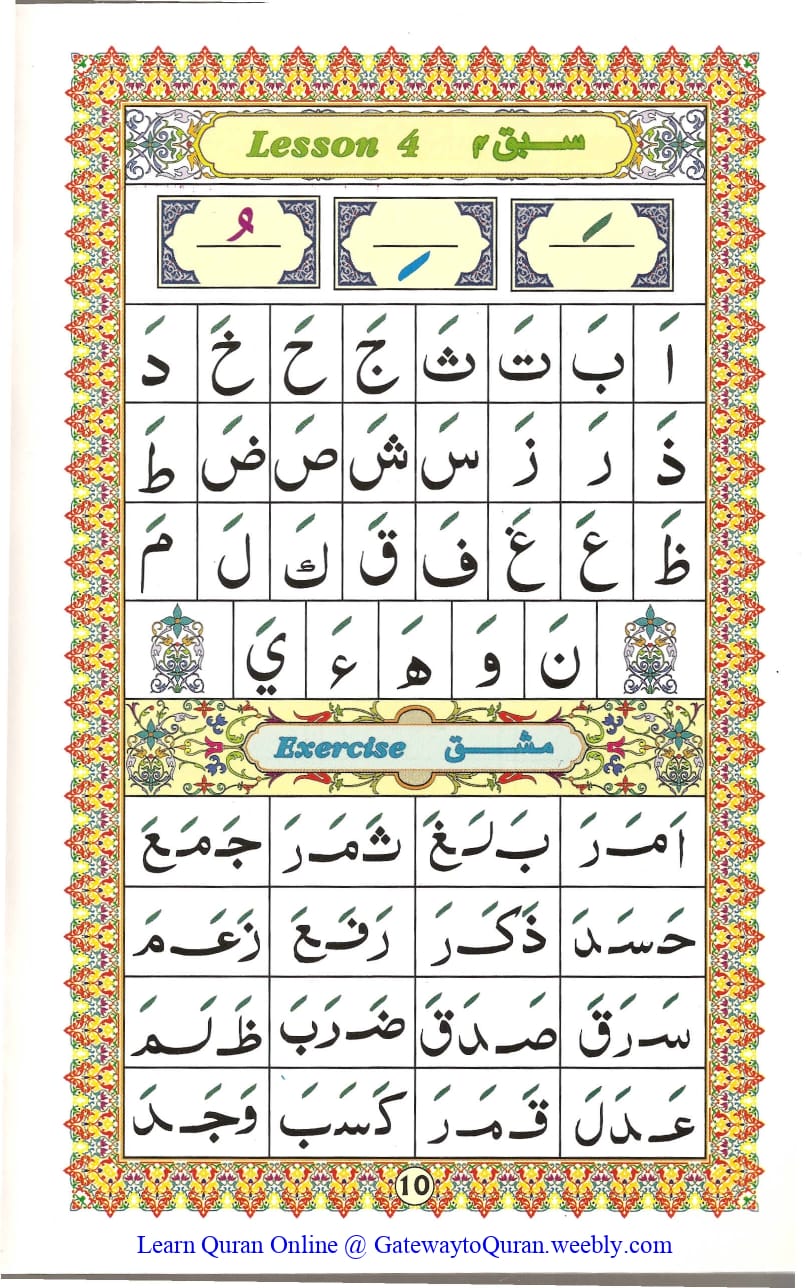 Lesson 4 سبق ۴
ـَ ـِ ـُ
اَ بَ تَ ثَ جَ حَ خَ دَ
ذَ رَ زَ سَ شَ صَ ضَ طَ
ظَ عَ غَ فَ قَ كَ لَ مَ
نَ وَ هَ ءَ يَ
Exercise مشق
اَمَرَ بَلَغَ ثَمَرَ جَمَعَ
حَسَدَ ذَكَرَ رَفَعَ زَعَمَ
سَرَقَ صَدَقَ ضَرَبَ ظَلَمَ
عَدَلَ قَمَرَ كَسَبَ وَجَدَ
10
Learn Quran Online @ GatewaytoQuran.weebly.com